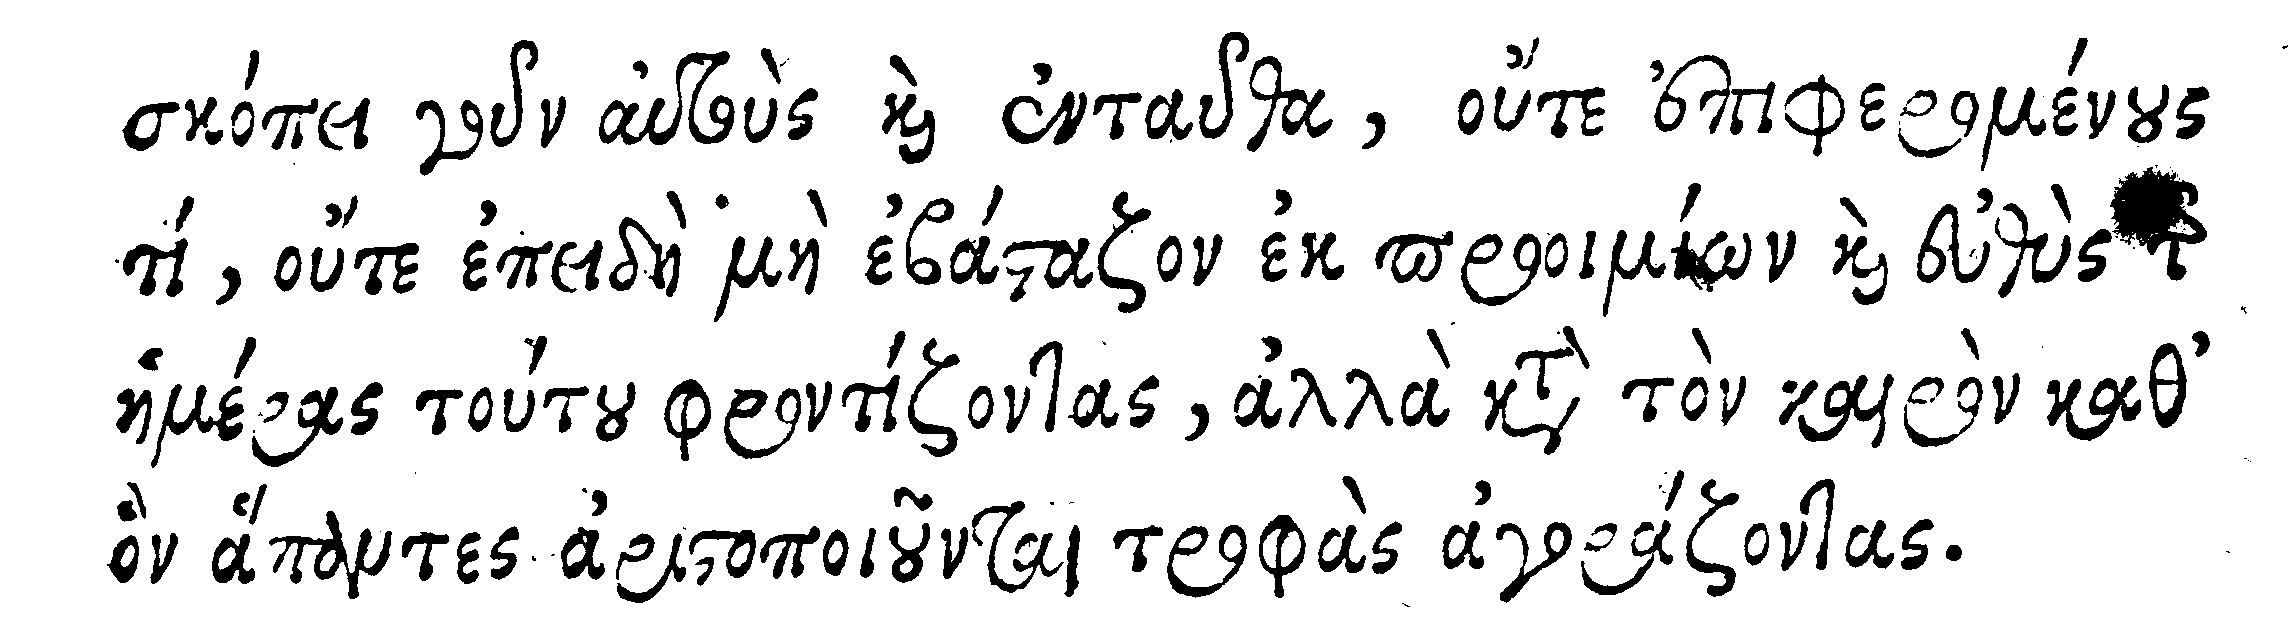 σκόπει γοῦν αὐτοὺς καὶ ἐνταῦθα, οὔτε ἐπιφερομένους
τί, οὔτε ἐπειδὴ μὴ ἐβάσταζον ἐκ προοιμίων καὶ εὐθὺς τῆς
ἡμέρας τούτου φροντίζοντας, ἀλλὰ κατὰ τὸν καιρὸν καθ’
ὃν ἅπαντες ἀριστοποιοῦνται τροφὰς ἀγοράζοντας.